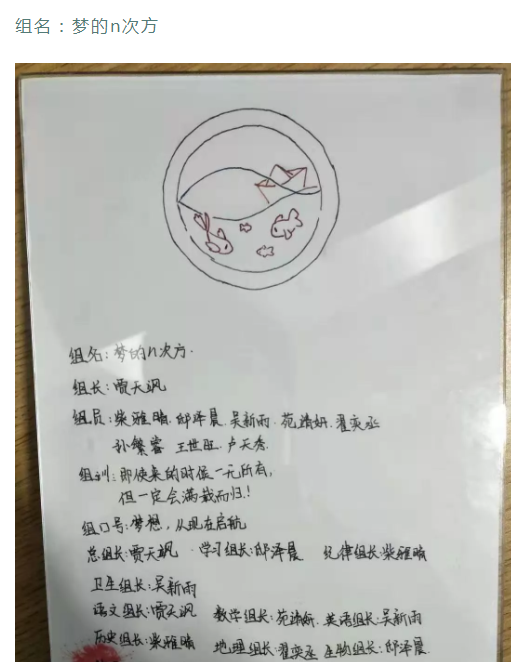 组名：梦的n次方
组名：梦的n次方.
组长：贾天飒
组员：柴雅晴.邱泽晨.吴新雨.苑靖妍.翟奕丞
孙繁睿 王世旺.卢天秀.
组训：即使来的时候一无所有，
但一定会满载而归！
组口号：梦想，从现在启航
总组长：贾天飒 学习组长：邱泽晨 纪律组长：柴雅晴
卫生组长：吴新雨
语文组长：贾天飒 数学组长：苑靖妍.英语组长：吴新雨
历史组长：柴雅晴 地理组长：翟奕丞 生物组长：邱泽晨.